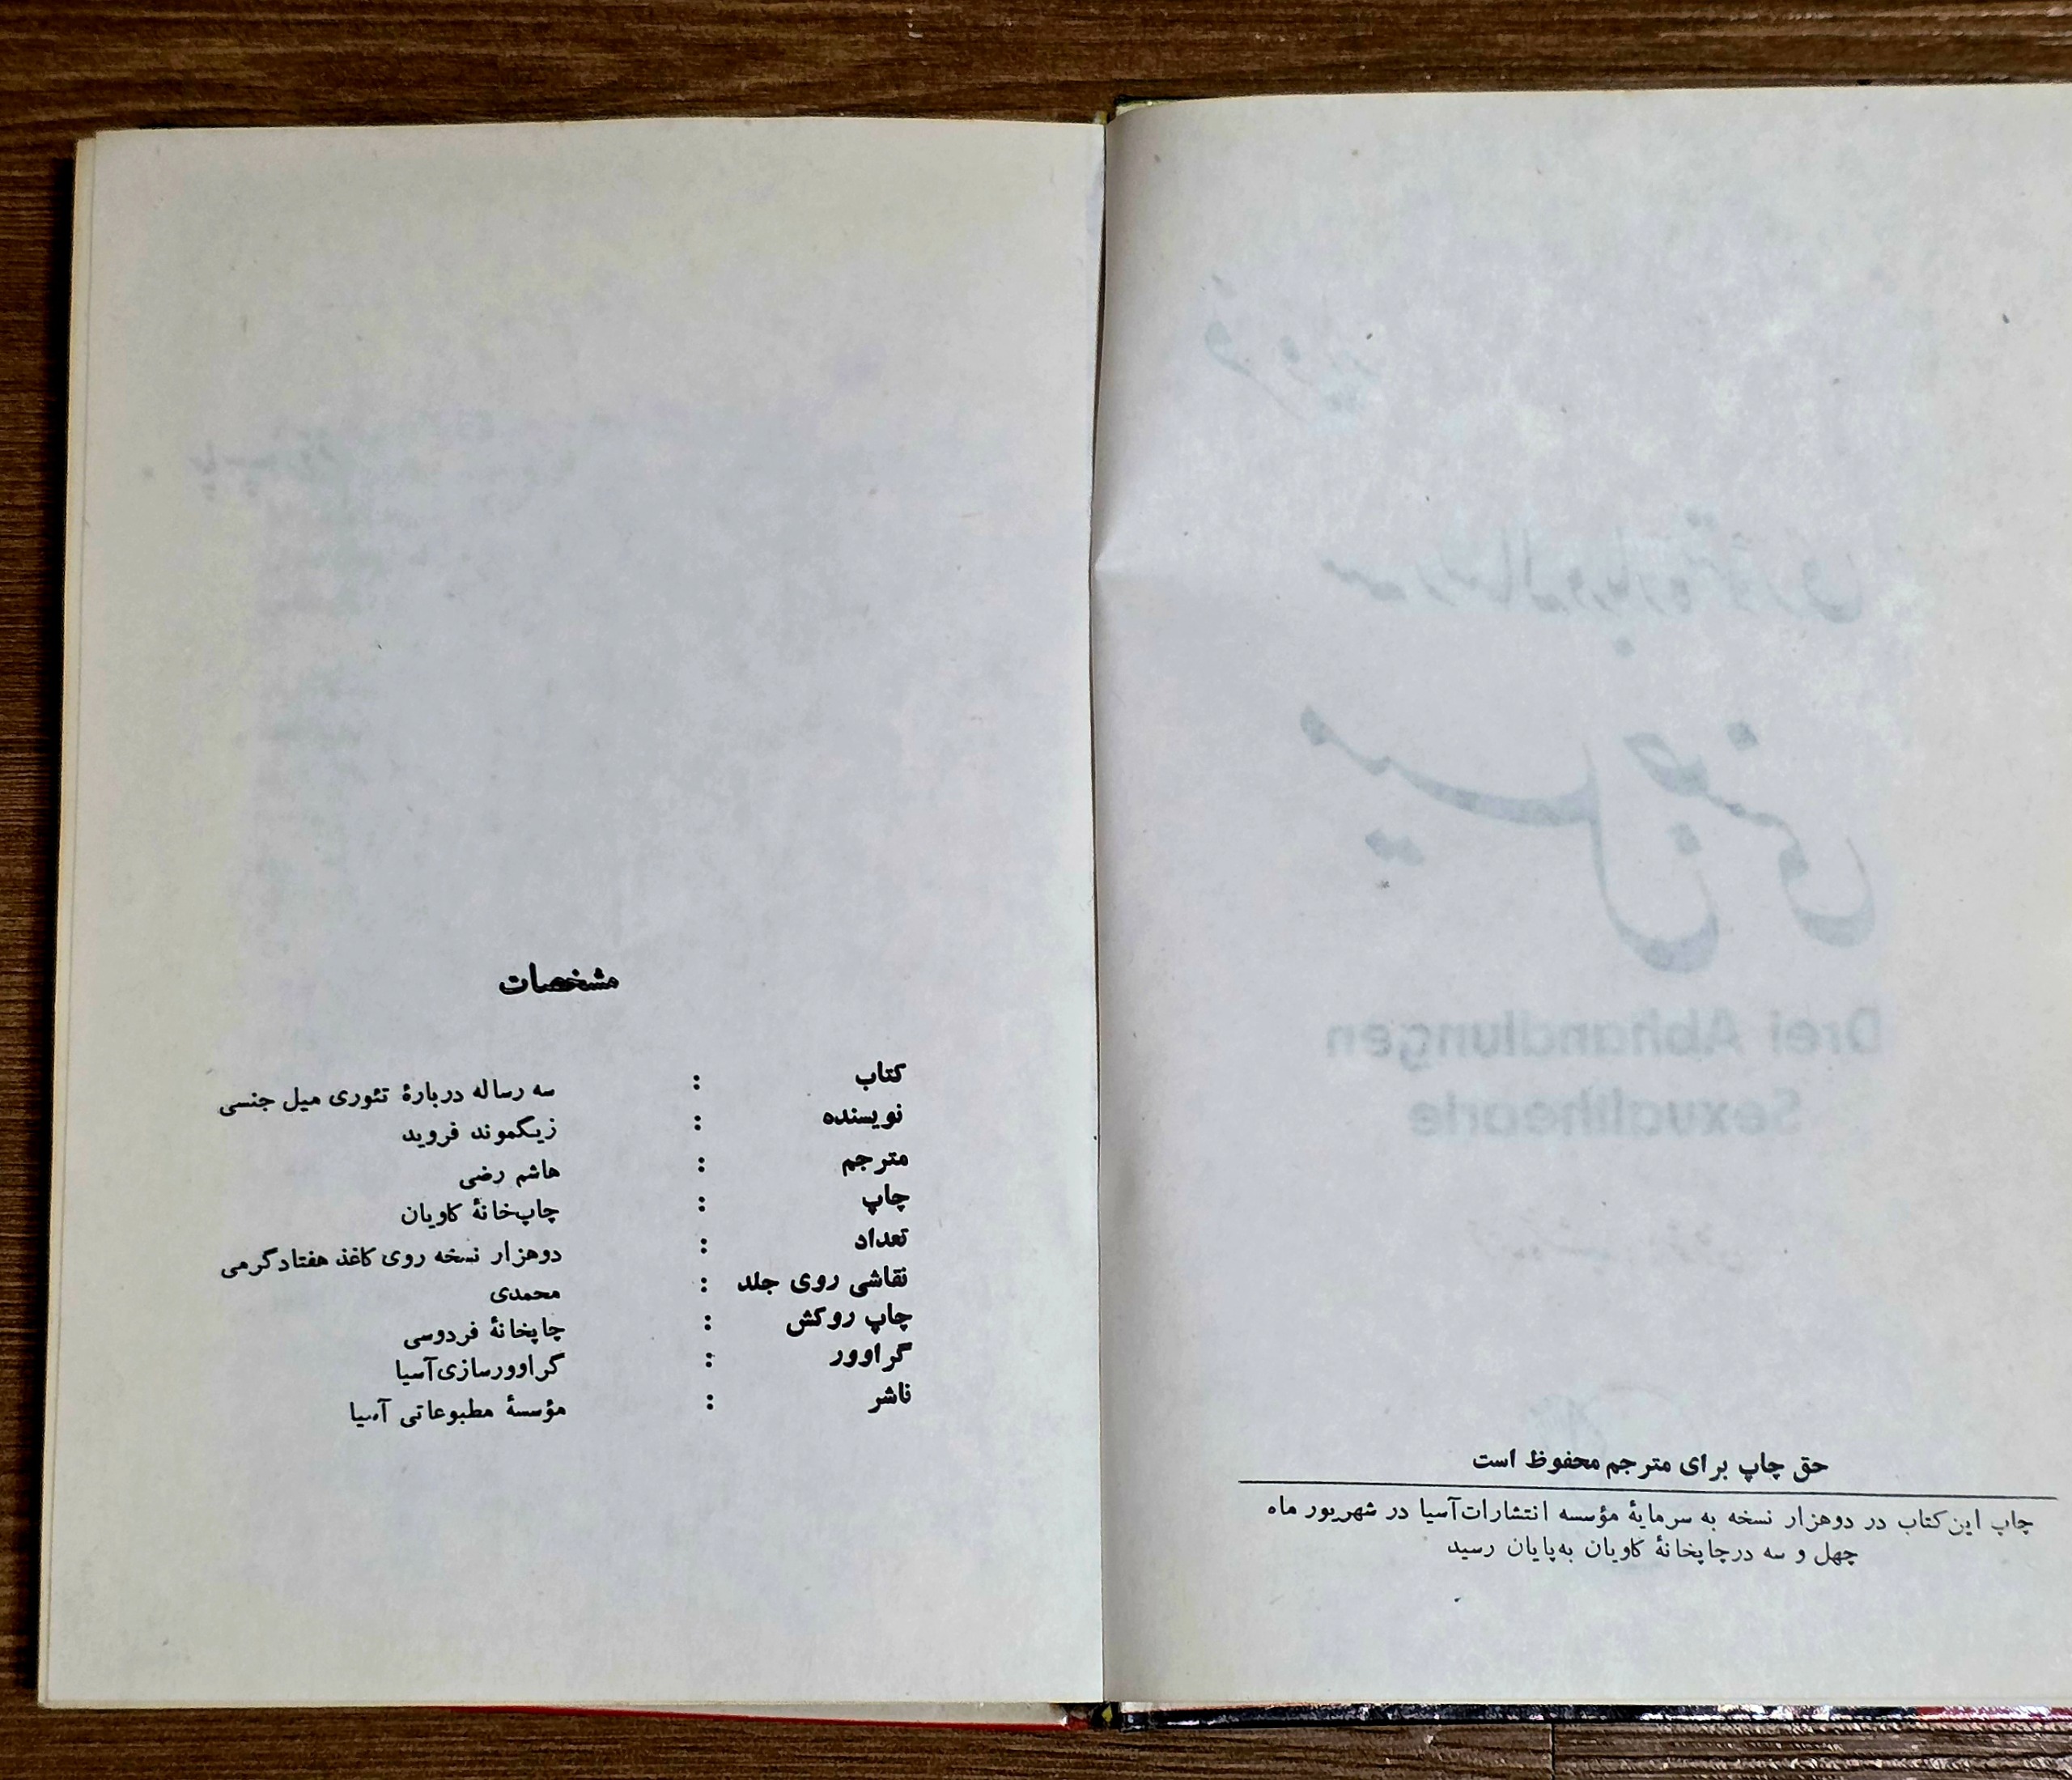 حق چاپ برای مترجم محفوظ است
چاپ این کتاب در دوهزار نسخه به سرمایهٔ مؤسسه انتشارات آسیا در شهریور ماه
چهل و سه درچاپخانهٔ کاویان به‌پایان رسید
مشخصات
کتاب : سه رساله دربارهٔ تئوری میل جنسی
نویسنده : زیگموند فروید
مترجم : هاشم رضی
چاپ : چاپ‌خانهٔ کاویان
تعداد : دوهزار نسخه روی کاغذ هفتادگرمی
نقاشی روی جلد : محمدی
چاپ روکش : چاپخانهٔ فردوسی
گراوور : گراوورسازی آسیا
ناشر : مؤسسهٔ مطبوعاتی آسیا
فروید
سه رساله درباره تئوری
میل جنسی
Drei Abhandlungen
Sexualtheorie